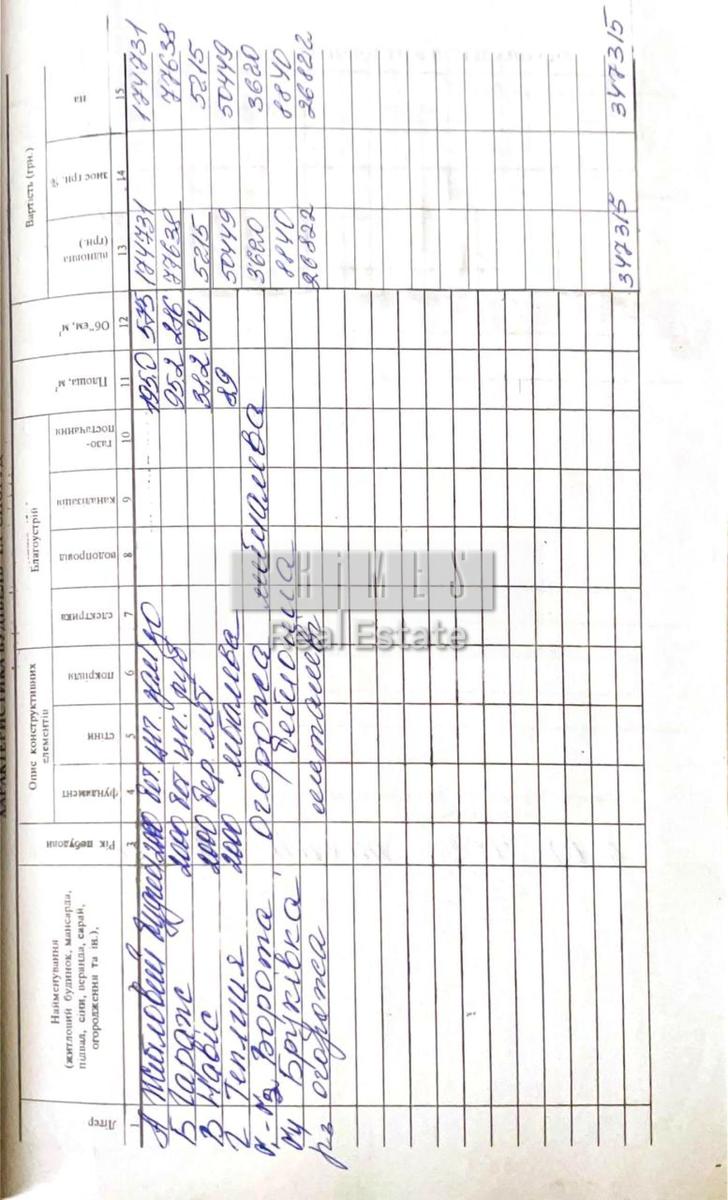 ХАРАКТЕРИСТИКА БУДІВЕЛЬ ТА СПОРУД
Літер
Найменування (житловий будинок, мансарда, підвал, сіни, веранда, сарай, огородження та ін.),
Рік побудови
Опис конструктивних елементів
фундамент
стіни
покрівля
Благоустрій
електрика
водопровід
каналізація
газо-постачання
Площа, м²
Об"єм, м³
Вартість (грн.)
відновна (грн.)
знос грн. %
на
1 2 3 4 5 6 7 8 9 10 11 12 13 14 15
А Житловий будинок 2000 195.0 575 174731 174731
Б Гараж 2000 95.2 286 77638 77638
В Навіс 2000 38.2 84 5215 5215
Г Теплиця 2000 металева 89 50449 50449
Ворота Огорожа металева 3620 3620
Бруківка бетонна 8840 8840
огорожа металева 26822 26822
347315 347315
Real Estate